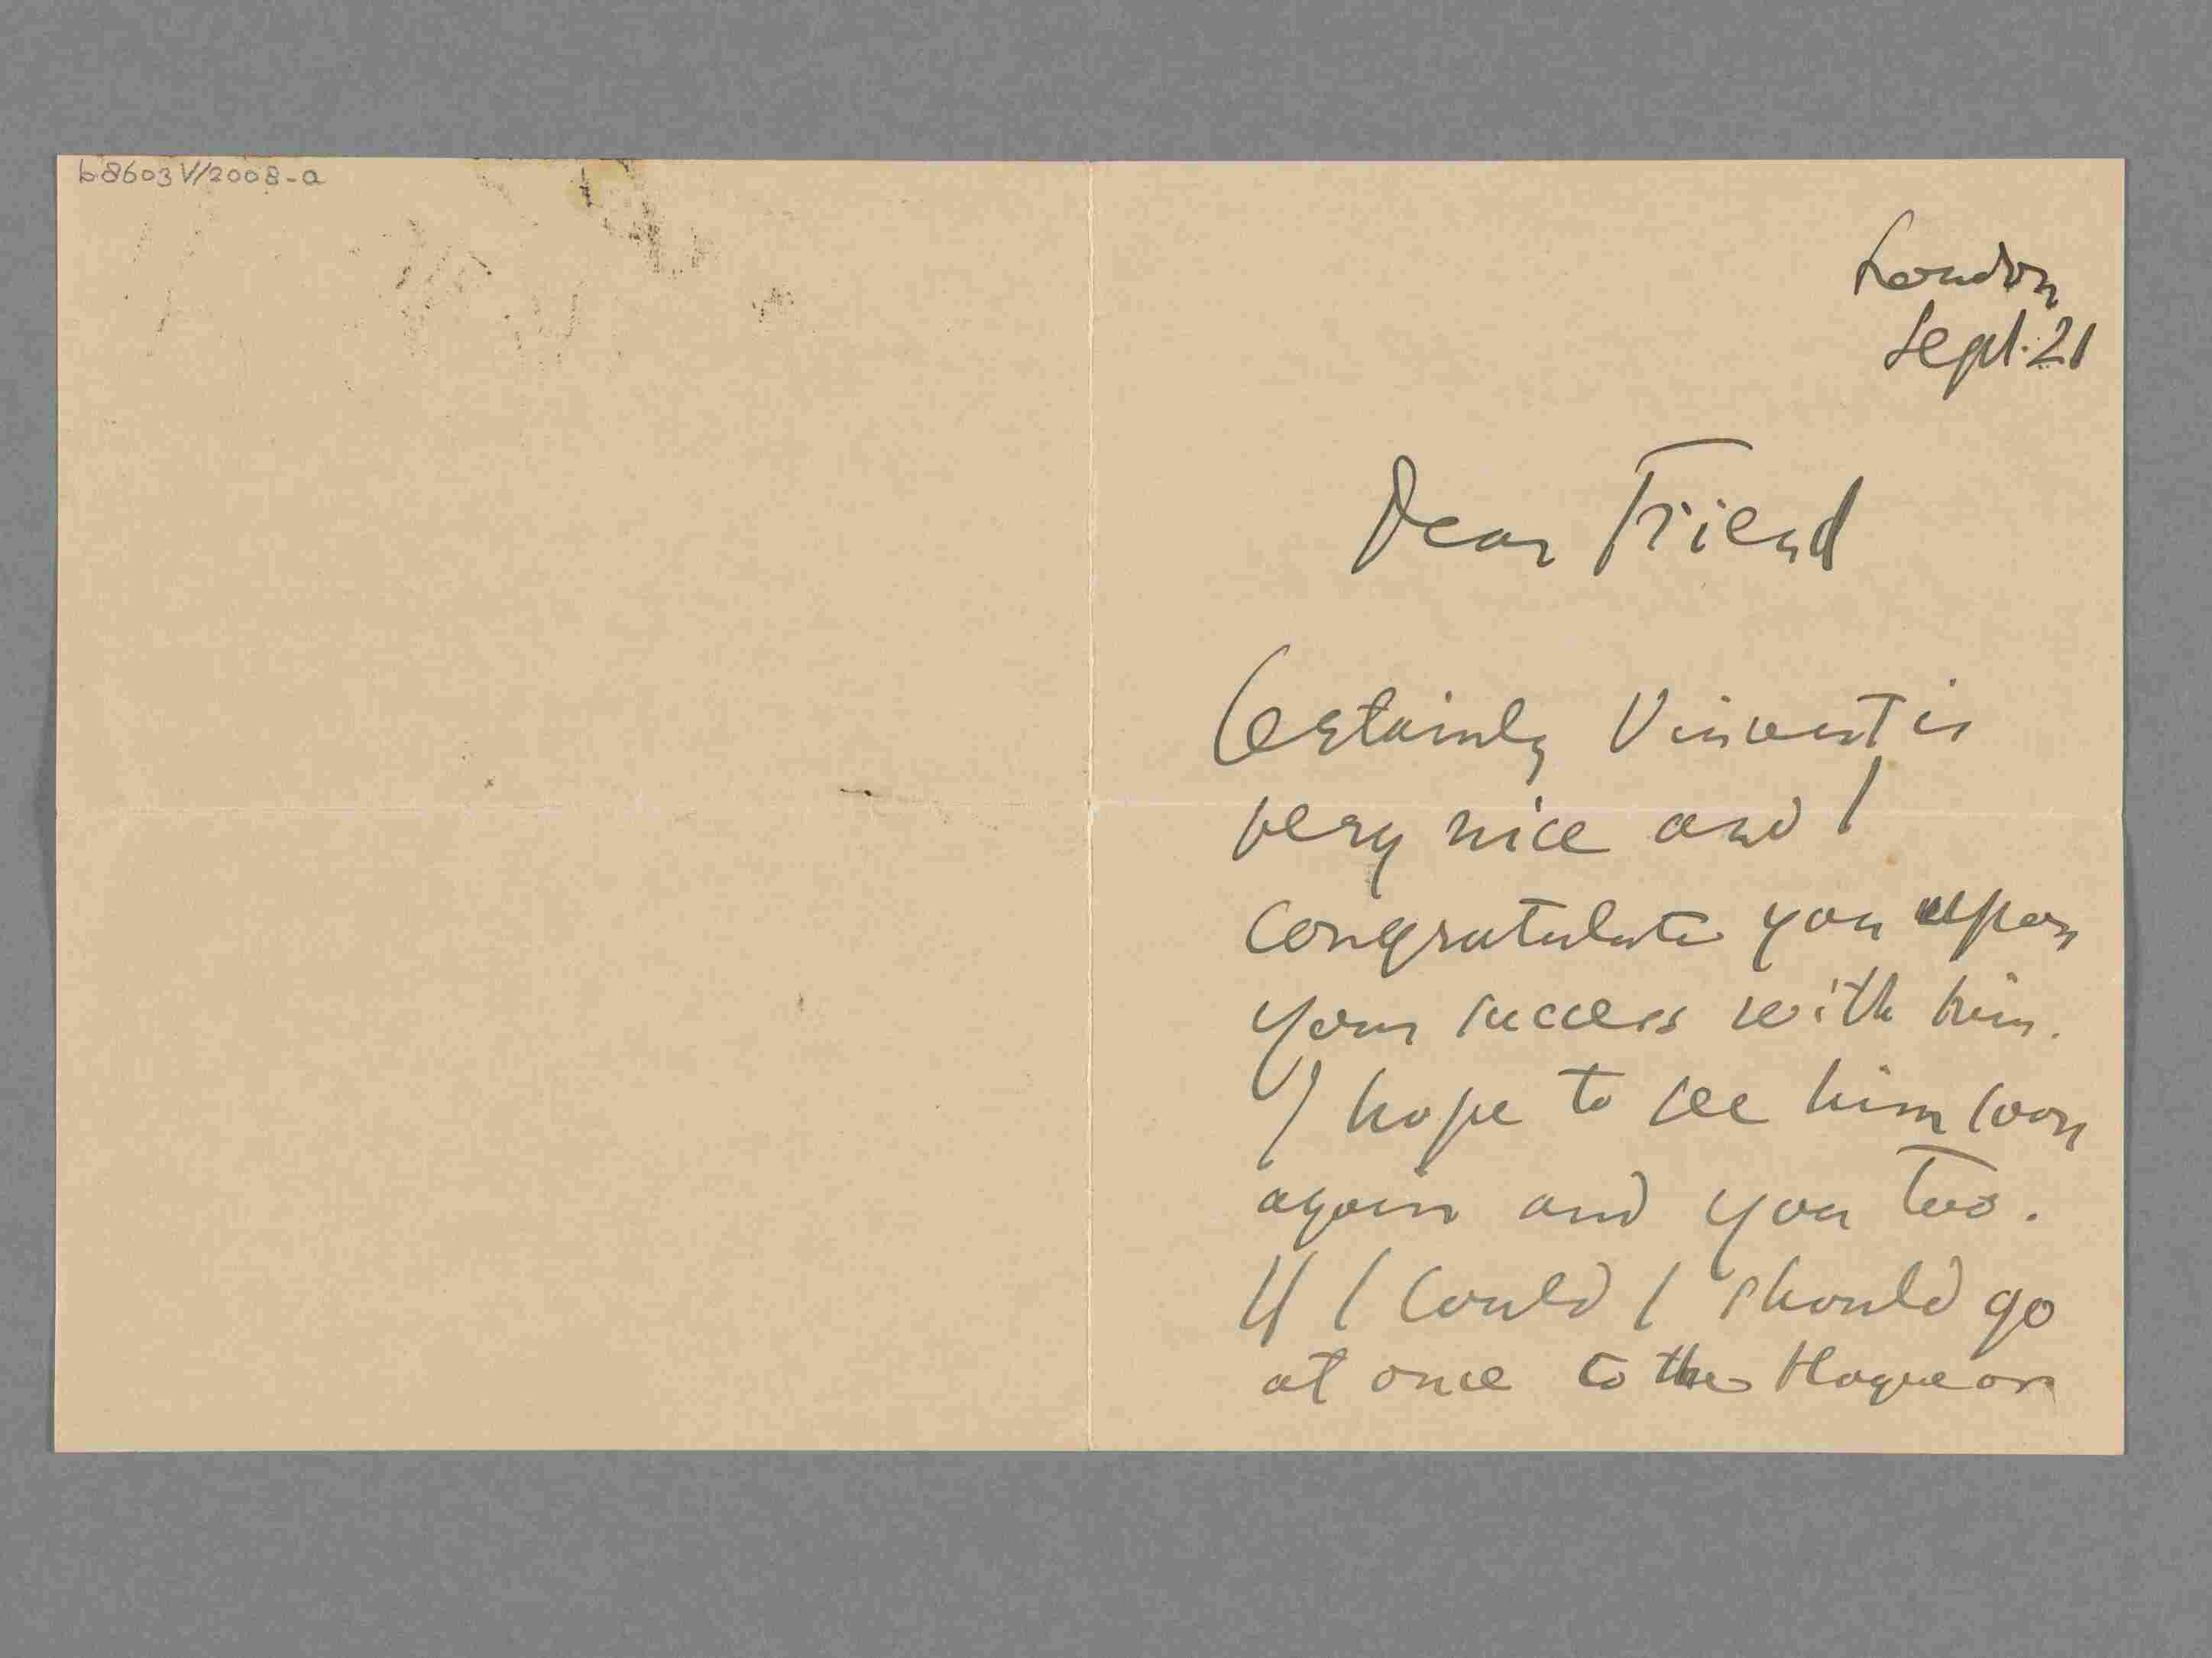 b8603 V/2008-a
London
Sept. 21
Dear Friend
Certainly Vincent is
very nice and I
congratulate you upon
your success with him.
I hope to see him soon
again and you too.
If I could I should go
at once to the Hague or